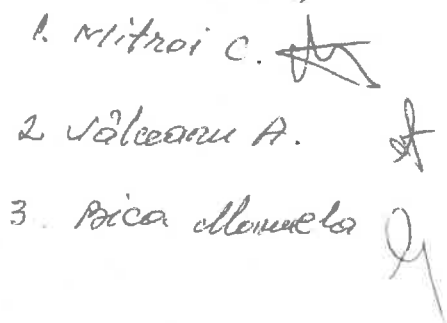 1. Mitroi C.
2 Vâlceanu A.
3. Bica Manuela